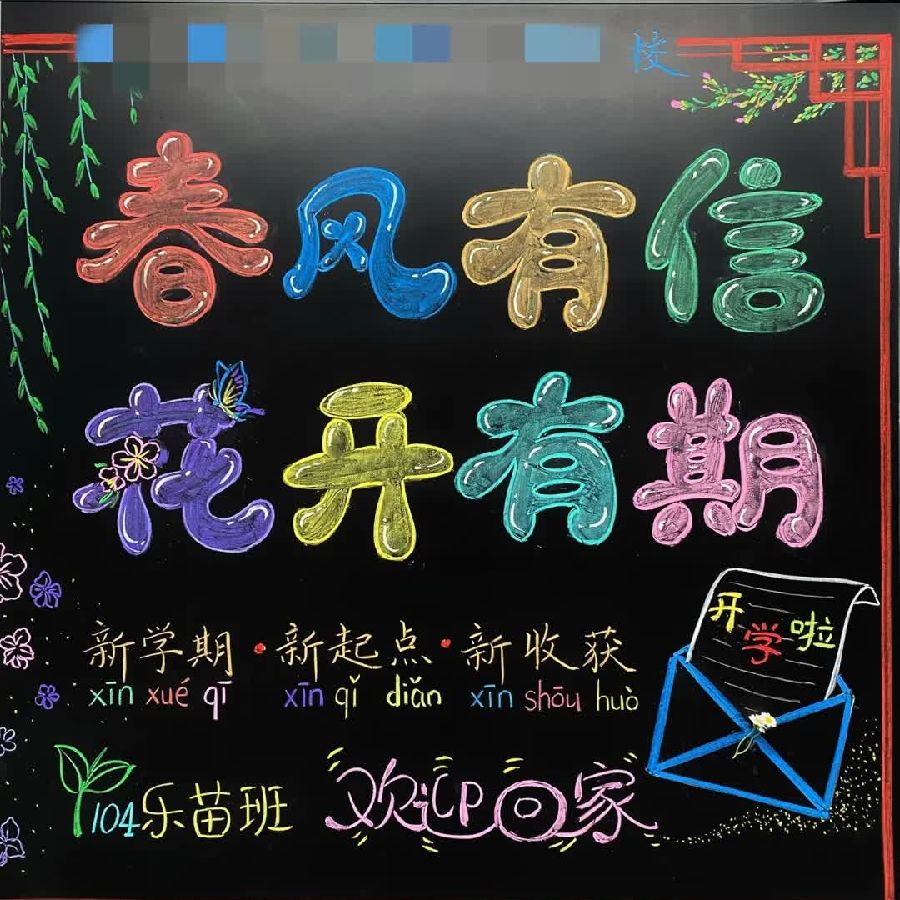 校
春风有信
花开有期
新学期·新起点·新收获
xīn xué qī xīn qǐ diǎn xīn shōu huò
开学啦
104乐苗班
欢迎回家